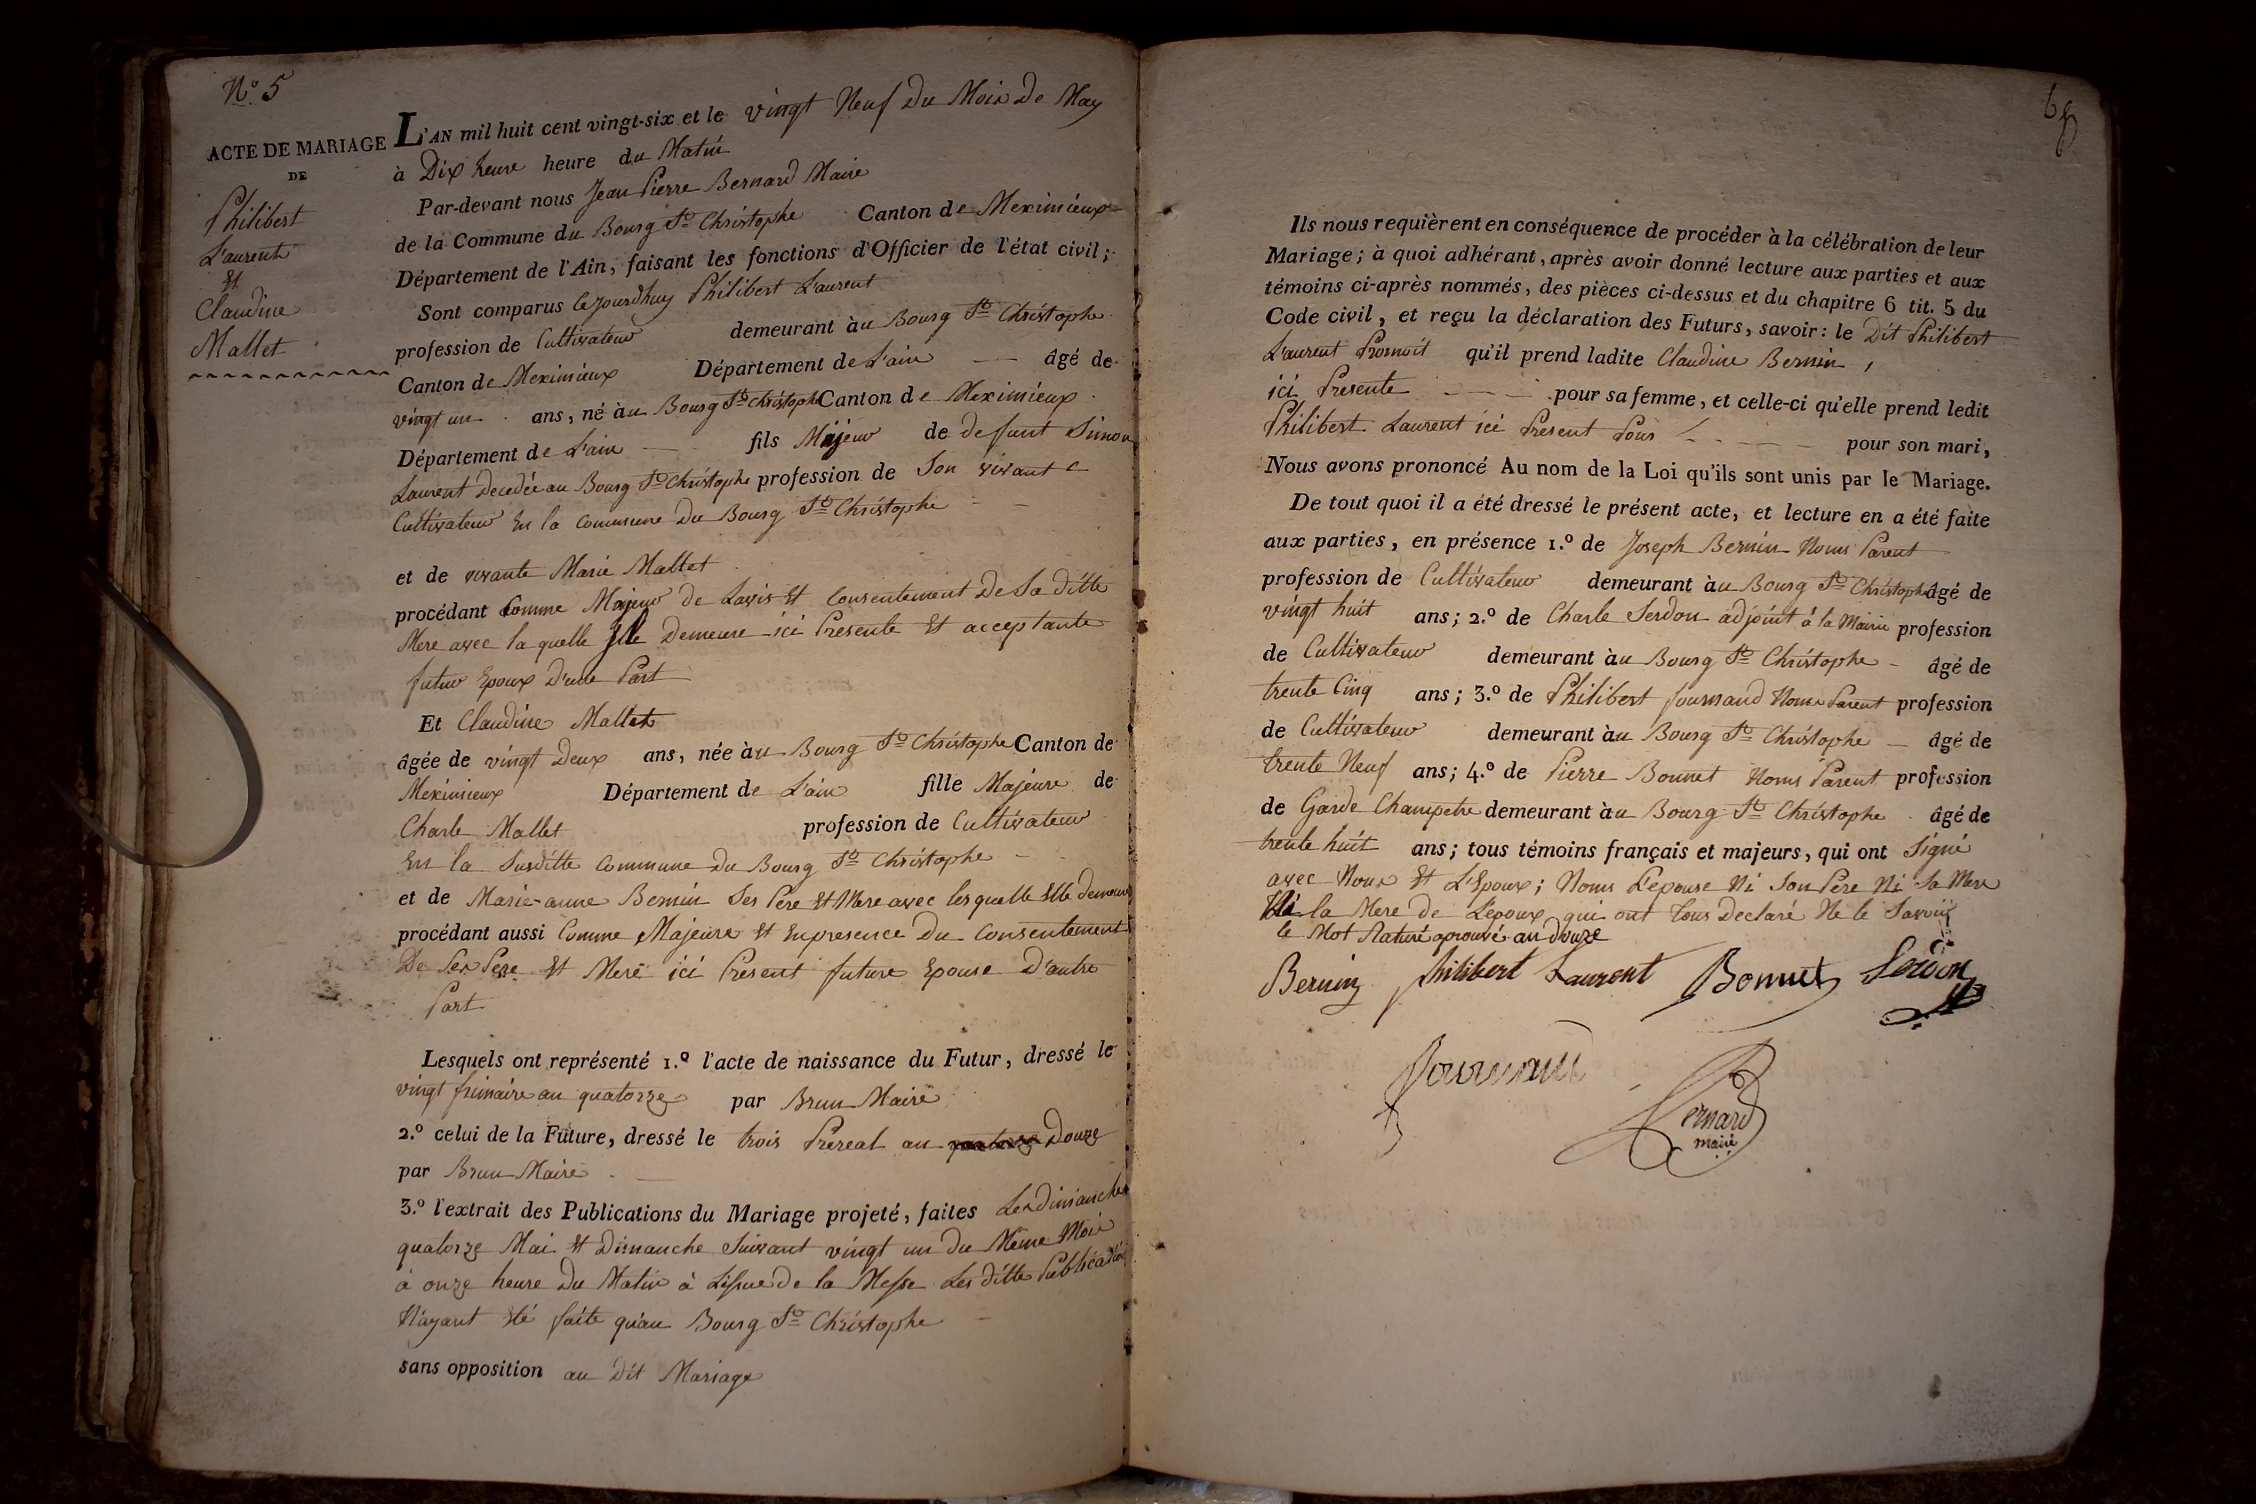 N.º 5
ACTE DE MARIAGE
DE
Philibert
Laurent
Et
Claudine
Mallet
L'AN mil huit cent vingt-six et le vingt Neuf du Mois de May
à Dix heure heure du Matin
Par-devant nous Jean Pierre Bernard Maire
de la Commune du Bourg St Christophe Canton de Meximieux
Département de l'Ain, faisant les fonctions d'Officier de l'état civil;
Sont comparus Cejourdhuy Philibert Laurent
profession de Cultivateur demeurant àu Bourg St Christophe
Canton de Meximieux Département de L'ain — âgé de
vingt un ans, né àu Bourg St Christophe Canton de Meximieux
Département de L'ain — fils Majeur de defunt Simon
Laurent Decedée au Bourg St Christophe profession de Son vivant
Cultivateur En la Commune Du Bourg St Christophe
et de vivante Marie Mallet
procédant Comme Majeur de Lavis Et Consentement De Sa ditte
Mere avec la quelle Il Demeure ici Presente Et acceptante
futur Epoux D'une Part
Et Claudine Mallet
âgée de vingt Deux ans, née àu Bourg St Christophe Canton de
Meximieux Département de L'ain fille Majeure de
Charle Mallet profession de Cultivateur
En la Susditte Commune du Bourg St Christophe
et de Marie-anne Bernin Ses Pere Et Mere avec lesquelle Elle demeure
procédant aussi Comme Majeure Et En presence Du Consentement
De Ses Pere Et Mere ici Present future Epouse D'autre
Part
Lesquels ont représenté 1.º l'acte de naissance du Futur, dressé le
vingt frimaire an quatorze par Brun Maire
2.º celui de la Future, dressé le trois Prereal an quatorze Douze
par Brun Maire
3.º l'extrait des Publications du Mariage projeté, faites Les Dimanche
quatorze Mai Et Dimanche Suivant vingt un du Même Mois
à onze heure Du Matin à Lissue De la Messe Les ditte Publication
N'ayant Eté faite qu'au Bourg St Christophe
sans opposition au Dit Mariage
Ils nous requièrent en conséquence de procéder à la célébration de leur
Mariage; à quoi adhérant, après avoir donné lecture aux parties et aux
témoins ci-après nommés, des pièces ci-dessus et du chapitre 6 tit. 5 du
Code civil, et reçu la déclaration des Futurs, savoir: le Dit Philibert
Laurent Promoit qu'il prend ladite Claudine Bernin,
ici Presente — pour sa femme, et celle-ci qu'elle prend ledit
Philibert Laurent ici Present Pour — pour son mari,
Nous avons prononcé Au nom de la Loi qu'ils sont unis par le Mariage.
De tout quoi il a été dressé le présent acte, et lecture en a été faite
aux parties, en présence 1.º de Joseph Bernin Noms Parent
profession de Cultivateur demeurant àu Bourg St Christophe âgé de
vingt huit ans; 2.º de Charle Serdon adjoint à la Mairie profession
de Cultivateur demeurant àu Bourg St Christophe — âgé de
trente Cinq ans; 3.º de Philibert Journaud Noms Parent profession
de Cultivateur demeurant àu Bourg St Christophe — âgé de
trente Neuf ans; 4.º de Pierre Bonnet Noms Parent profession
de Garde Champetre demeurant àu Bourg St Christophe âgé de
trente huit ans; tous témoins français et majeurs, qui ont Signé
avec Nous Et L'Epoux; Noms L'epouse Ni Son Pere Ni Sa Mere
Ni la Mere de L'epoux qui ont tous Declaré Ne le Savoir
le Mot Raturé aprouvé an douze
Bernin Philibert Laurent Bonnet Serdon
Journaud
Bernard
maire